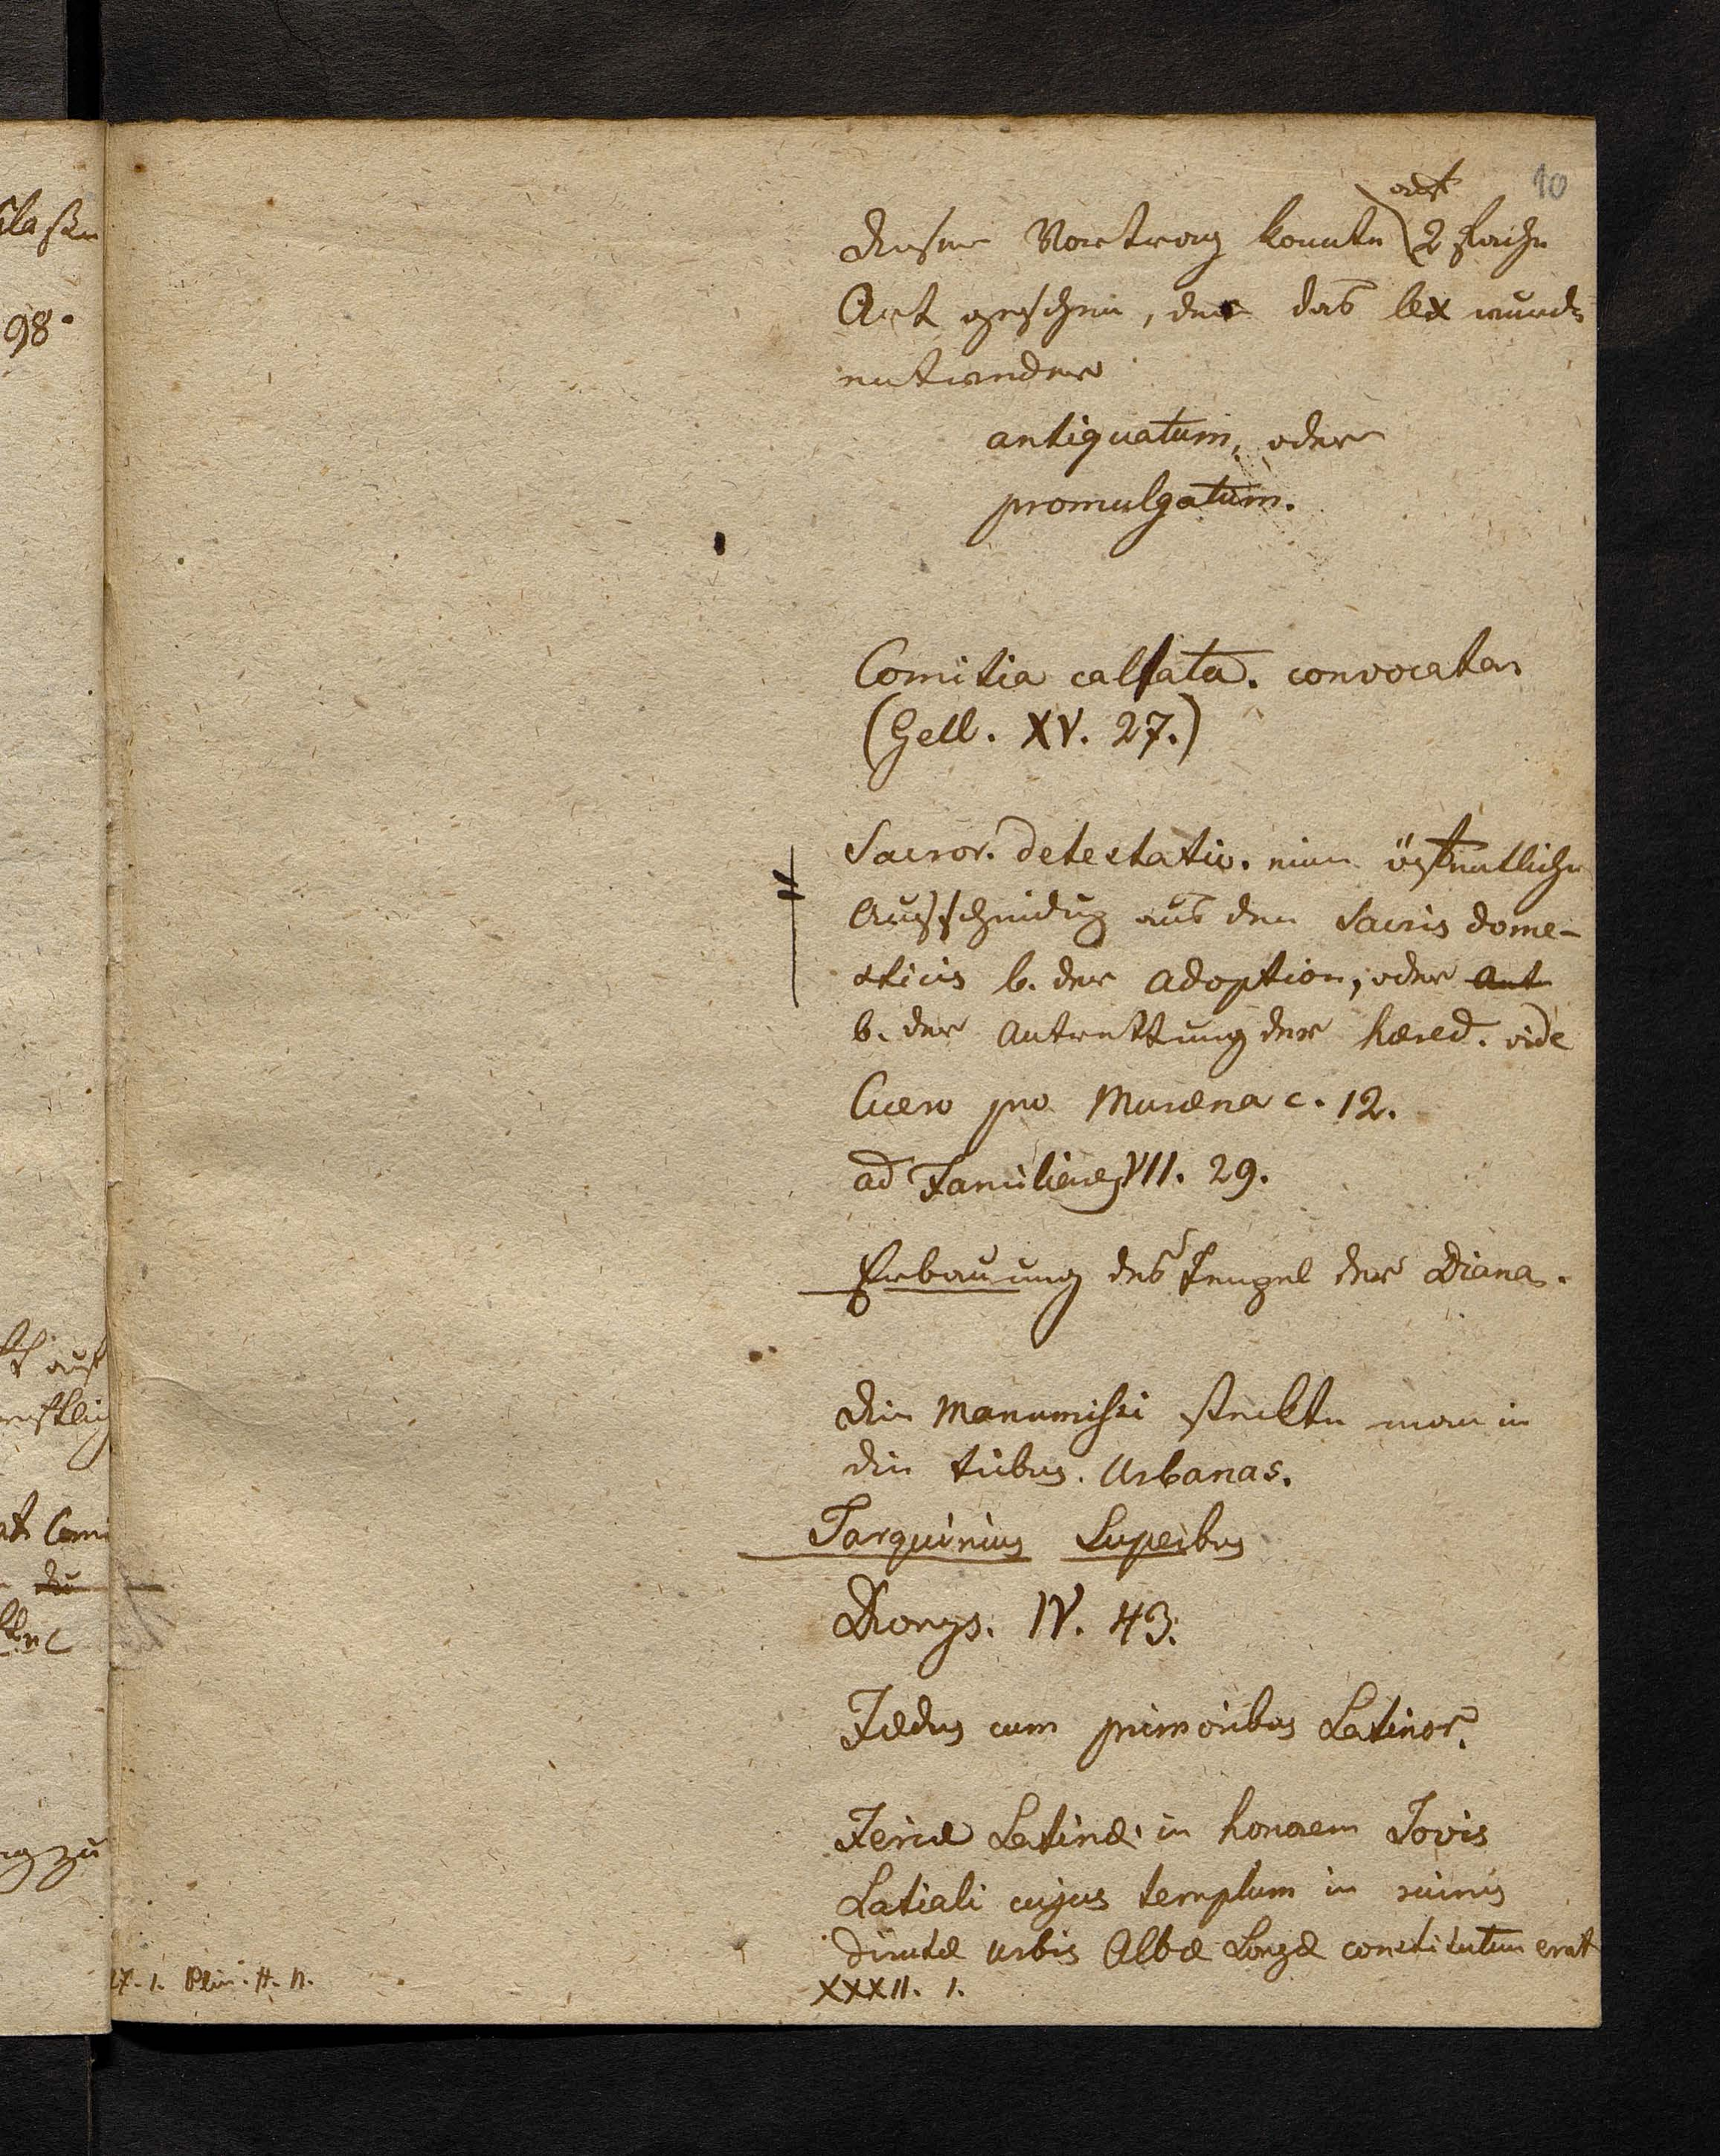 10
auf
dieser Vortrag konnte 2 fache
Art geschehn, der das lex wurde
entweder
antiquatum, oder
promulgatum.
Comitia callata. convocata.
(Gell. XV. 27.)
Sacror. detestatio. eine öffentliche
Ausscheidung aus den Sacris dome-
sticis b. der Adoption, oder Ant
b. der Antrettung der hæred. vide
Cicero pro Muræna c. 12.
ad Familiares VII. 29.
Erbauung des Tempel der Diana.
die Manumissi steckte man in
die tribus. Urbanas.
Tarquinius Superbus
Dionys. IV. 43.
Fædus cum primoribus Latinor.
Feriæ Latinæ in honorem Jovis
Latiali cujus templum in ruinis
dirutæ urbis Albæ Longæ constitutum erat
IX. 1. Plin. H. N. XXXII. 1.